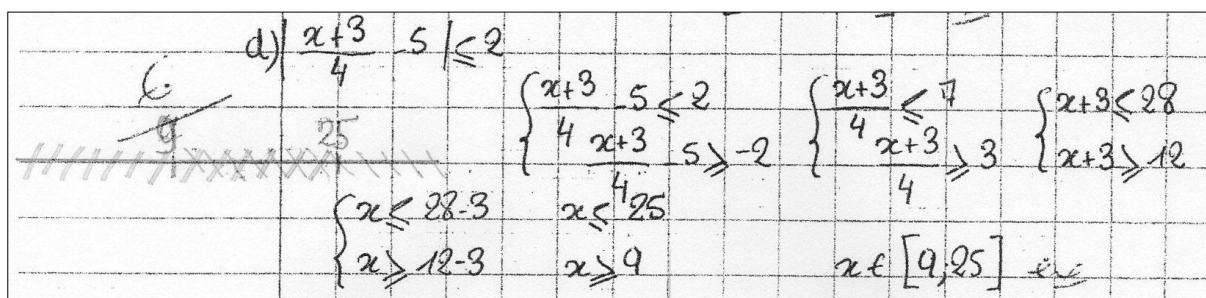 d) |x+3/4 - 5| ≤ 2
{ x+3/4 - 5 ≤ 2
x+3/4 - 5 ≥ -2
{ x+3/4 ≤ 7
x+3/4 ≥ 3
{ x+3 ≤ 28
x+3 ≥ 12
9 25
{ x ≤ 28-3
x ≥ 12-3
x ≤ 25
x ≥ 9
x ∈ [9;25]